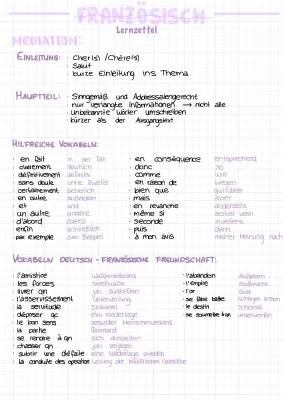 FRANZÖSISCH
Lernzettel
MEDIATION:
EINLEITUNG: · Cher(s) /Chère(s)
· Salut
· kurze Einleitung ins Thema
HAUPTTEIL: · Sinngemäß und Addressatengerecht
· nur verlangte Informationen → nicht alle
· Unbekannte wörter umschreiben
· kürzer als der Ausgangstext
HILFREICHE VOKABELN:
· en fait in der Tat
· clairement deutlich
· définitivement definitiv
· sans doute ohne Zweifel
· certainement sicherlich
· en outre außerdem
· et und
· un autre andere
· d'abord zuerst
· enfin schließlich
· par exemple zum Beispiel
· en conséquence entsprechend
· donc
· comme
· en raison de wegen
· bien que
· mais aber
· en revanche
· même si selbst wenn
· seconde zweitens
· puis dann
· à mon avis meiner Meinung nach
VOKABELN DEUTSCH - FRANZÖSISCHE FREUNDSCHAFT:
· l'armistice Waffenstillstand
· les forces Streitkräfte
· livrer qn jdn. ausliefern
· l'asservissement Unterwerfung
· la servitude
· déposer qc
· le bon sens gesunder Menschenverstand
· la patrie Vaterland
· se rendre à qn
· chasser qn jdn. verjagen
· subir une défaite eine Niederlage erleiden
· la conduite des opération Leitung der militärischen Operation
· l'abandon Aufgeben
· l'empire
· l'or Gold
· se faire battre
· le destin Schicksal
· se soumettre unterwerfen